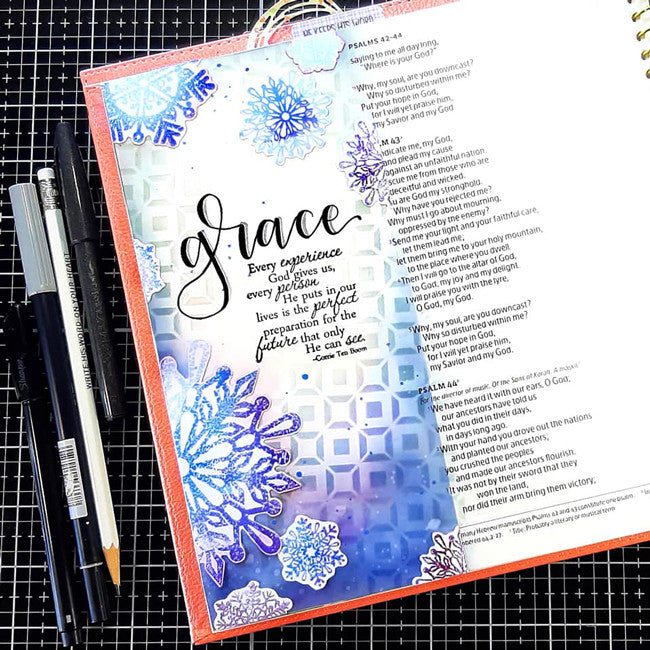 HE KEEPS HIS WORD
PSALMS 42-44
saying to me all day long,
"Where is your God?"
Why, my soul, are you downcast?
Why so disturbed within me?
Put your hope in God,
for I will yet praise him,
my Savior and my God.
PSALM 43
me, my God,
and plead my cause
against an unfaithful nation.
me from those who are
deceitful and wicked.
You are God my stronghold.
Why have you rejected me?
Why must I go about mourning,
oppressed by the enemy?
Send me your light and your faithful care,
let them lead me;
let them bring me to your holy mountain,
to the place where you dwell.
Then I will go to the altar of God,
to God, my joy and my delight.
I will praise you with the lyre,
O God, my God.
Why, my soul, are you downcast?
Why so disturbed within me?
Put your hope in God,
for I will yet praise him,
my Savior and my God.
PSALM 44
For the director of music. Of the Sons of Korah. A maskil.
We have heard it with our ears, O God;
our ancestors have told us
what you did in their days,
in days long ago.
With your hand you drove out the nations
and planted our ancestors;
you crushed the peoples
and made our ancestors flourish.
It was not by their sword that they
won the land,
nor did their arm bring them victory;
many Hebrew manuscripts Psalms 42 and 43 constitute one psalm.
Title: Probably a literary or musical term
grace
Every experience
God gives us,
every person
He puts in our
lives is the perfect
preparation for the
future that only
He can see.
-Corrie Ten Boom
WRITE HIS WORD ON YOUR HEART